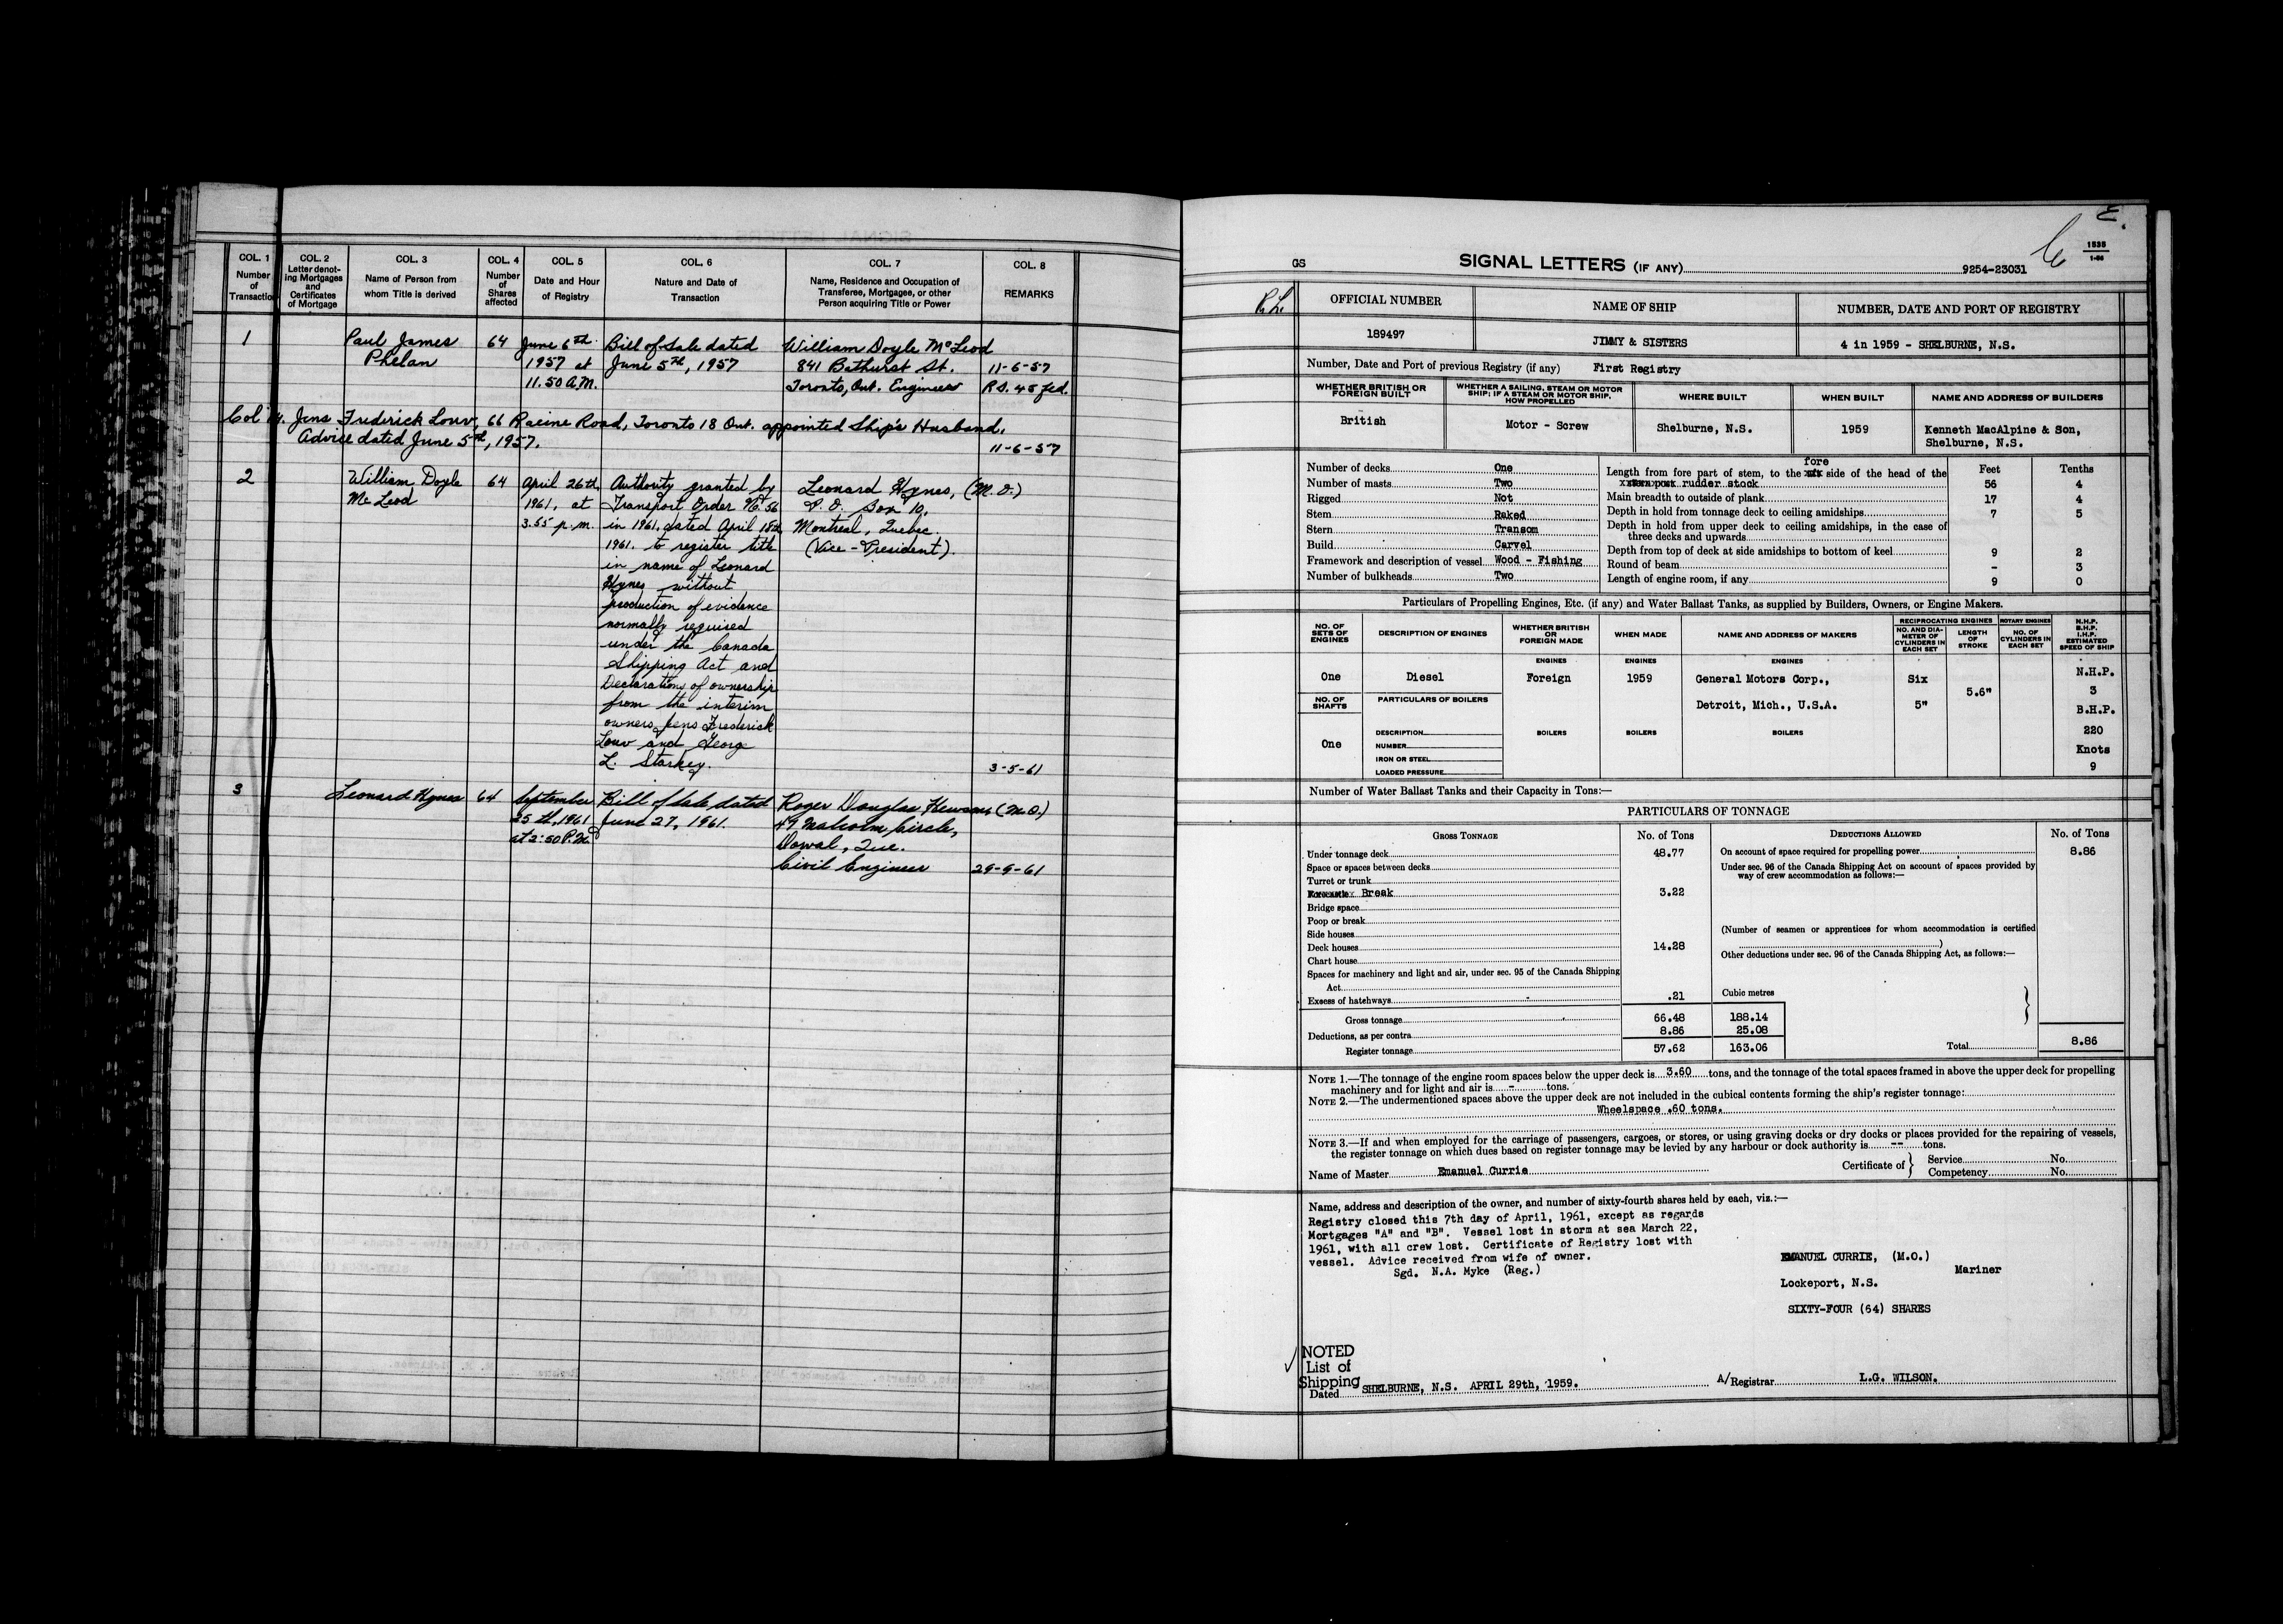 COL. 1
Number
of
Transaction
COL. 2
Letter denot-
ing Mortgages
and
Certificates
of Mortgage
COL. 3
Name of Person from
whom Title is derived
COL. 4
Number
of
Shares
affected
COL. 5
Date and Hour
of Registry
COL. 6
Nature and Date of
Transaction
COL. 7
Name, Residence and Occupation of
Transferee, Mortgagee, or other
Person acquiring Title or Power
COL. 8
REMARKS
1
Paul James
Phelan
64
June 6th
1957 at
11.50 A.M.
Bill of Sale dated
June 5th, 1957
William Doyle McLeod
841 Bathurst St.
Toronto, Ont. Engineer
11-6-57
R.S. 45 fed.
Col 4. Jens Frederick Louv, 66 Racine Road, Toronto 18 Ont. appointed Ship's Husband.
Advice dated June 5th, 1957.
11-6-57
2
William Doyle
McLeod
64
April 26th
1961, at
3.55 p.m.
Authority granted by
Transport Order No. 56
in 1961, dated April 18th
1961. to register title
in name of Leonard
Hynes without
production of evidence
normally required
under the Canada
Shipping Act and
Declarations of ownership
from the interim
owners Jens Frederick
Louv and George
L. Starkey.
Leonard Hynes, (M.O.)
P.O. Box 10,
Montreal, Quebec.
(Vice-President).
3-5-61
3
Leonard Hynes
64
September
25th, 1961
at 2:50 P.M.
Bill of Sale dated
June 27, 1961.
Roger Douglas Hewson (M.O.)
49 Malcolm Circle,
Dorval, Que.
Civil Engineer
29-9-61
GS
SIGNAL LETTERS (IF ANY)
9254-23031
1535
1-56
R.L.
OFFICIAL NUMBER
NAME OF SHIP
NUMBER, DATE AND PORT OF REGISTRY
189497
JIMMY & SISTERS
4 in 1959 - SHELBURNE, N.S.
Number, Date and Port of previous Registry (if any) First Registry
WHETHER BRITISH OR
FOREIGN BUILT
WHETHER A SAILING, STEAM OR MOTOR
SHIP; IF A STEAM OR MOTOR SHIP,
HOW PROPELLED
WHERE BUILT
WHEN BUILT
NAME AND ADDRESS OF BUILDERS
British
Motor - Screw
Shelburne, N.S.
1959
Kenneth MacAlpine & Son,
Shelburne, N.S.
Number of decks One
Number of masts Two
Rigged Not
Stem Raked
Stern Transom
Build Carvel
Framework and description of vessel Wood - Fishing
Number of bulkheads Two
Feet
Tenths
fore
Length from fore part of stem, to the side of the head of the
rudder stock 56 4
Main breadth to outside of plank 17 4
Depth in hold from tonnage deck to ceiling amidships 7 5
Depth in hold from upper deck to ceiling amidships, in the case of
three decks and upwards
Depth from top of deck at side amidships to bottom of keel 9 2
Round of beam - 3
Length of engine room, if any 9 0
Particulars of Propelling Engines, Etc. (if any) and Water Ballast Tanks, as supplied by Builders, Owners, or Engine Makers.
NO. OF
SETS OF
ENGINES
DESCRIPTION OF ENGINES
WHETHER BRITISH
OR
FOREIGN MADE
WHEN MADE
NAME AND ADDRESS OF MAKERS
RECIPROCATING ENGINES
NO. AND DIA-
METER OF
CYLINDERS IN
EACH SET
LENGTH
OF
STROKE
ROTARY ENGINES
NO. OF
CYLINDERS IN
EACH SET
N.H.P.
B.H.P.
I.H.P.
ESTIMATED
SPEED OF SHIP
ENGINES
ENGINES
ENGINES
One
Diesel
Foreign
1959
General Motors Corp.,
Detroit, Mich., U.S.A.
Six
5"
5.6"
N.H.P.
3
B.H.P.
220
Knots
9
NO. OF
SHAFTS
PARTICULARS OF BOILERS
One
DESCRIPTION
NUMBER
IRON OR STEEL
LOADED PRESSURE
BOILERS
BOILERS
BOILERS
Number of Water Ballast Tanks and their Capacity in Tons:—
PARTICULARS OF TONNAGE
GROSS TONNAGE
No. of Tons
DEDUCTIONS ALLOWED
No. of Tons
Under tonnage deck 48.77
Space or spaces between decks
Turret or trunk
Break 3.22
Bridge space
Poop or break
Side houses
Deck houses 14.28
Chart house
Spaces for machinery and light and air, under sec. 95 of the Canada Shipping
Act
Excess of hatchways .21
Cubic metres
Gross tonnage 66.48 188.14
Deductions, as per contra 8.86 25.08
Register tonnage 57.62 163.06
On account of space required for propelling power 8.86
Under sec. 96 of the Canada Shipping Act on account of spaces provided by
way of crew accommodation as follows:—
(Number of seamen or apprentices for whom accommodation is certified
)
Other deductions under sec. 96 of the Canada Shipping Act, as follows:—
Total 8.86
NOTE 1.—The tonnage of the engine room spaces below the upper deck is 3.60 tons, and the tonnage of the total spaces framed in above the upper deck for propelling
machinery and for light and air is - tons.
NOTE 2.—The undermentioned spaces above the upper deck are not included in the cubical contents forming the ship's register tonnage:
Wheelspace .60 tons.
NOTE 3.—If and when employed for the carriage of passengers, cargoes, or stores, or using graving docks or dry docks or places provided for the repairing of vessels,
the register tonnage on which dues based on register tonnage may be levied by any harbour or dock authority is -- tons.
Name of Master Emanuel Currie
Certificate of
Service No.
Competency No.
Name, address and description of the owner, and number of sixty-fourth shares held by each, viz.:—
Registry closed this 7th day of April, 1961, except as regards
Mortgages "A" and "B". Vessel lost in storm at sea March 22,
1961, with all crew lost. Certificate of Registry lost with
vessel. Advice received from wife of owner.
Sgd. N.A. Myke (Reg.)
EMANUEL CURRIE, (M.O.)
Mariner
Lockeport, N.S.
SIXTY-FOUR (64) SHARES
NOTED
List of
Shipping
Dated SHELBURNE, N.S. APRIL 29th, 1959.
A/Registrar L.G. WILSON.